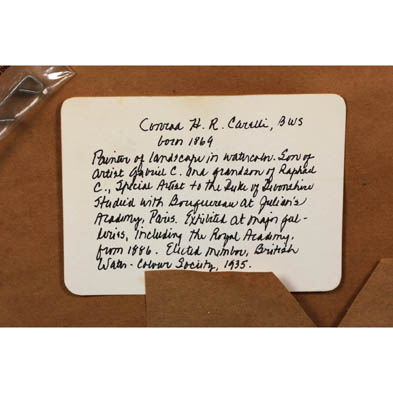 Conrad H. R. Carelli, BWS
born 1869
Painter of landscape in watercolor. Son of
Artist Gabriel C. and grandson of Raphael
C., Special Artist to the Duke of Devonshire
Studied with Bouguereau at Julian's
Academy, Paris. Exhibited at major gal-
leries, including the Royal Academy,
from 1886. Elected member, British
Water-Colour Society, 1935.